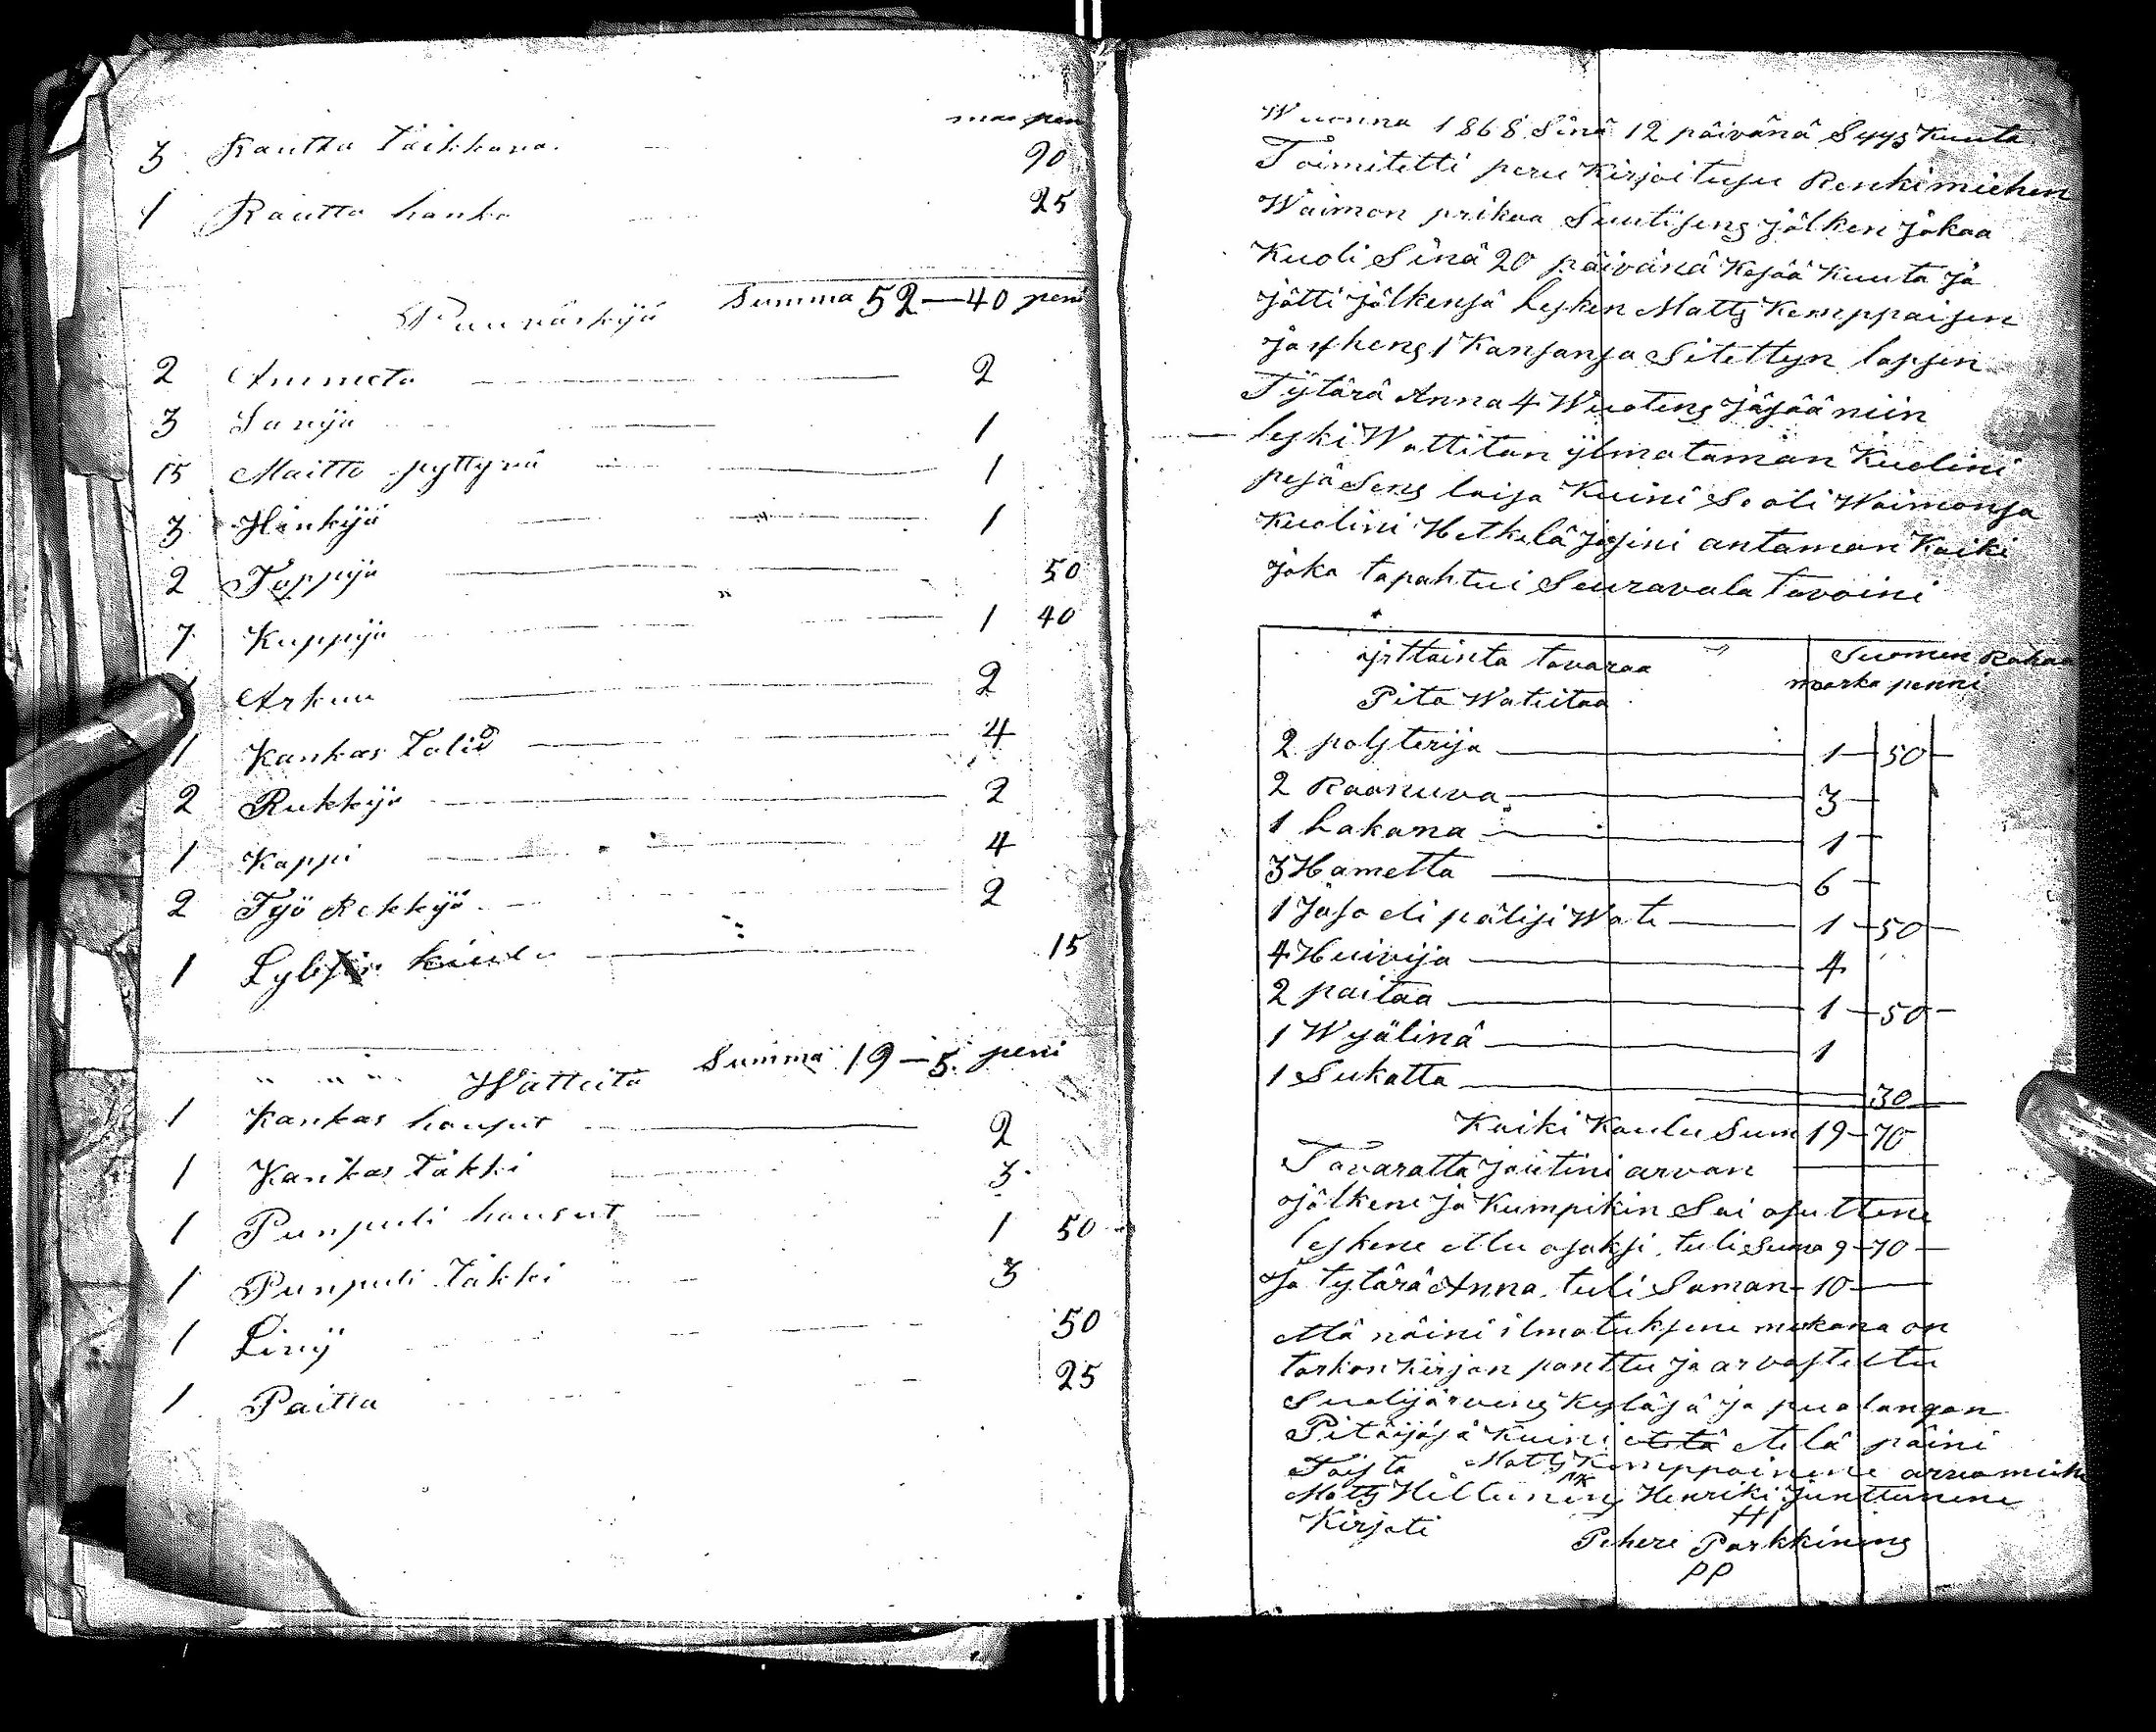 mar pen
3 Rautta täikkana 90
1 Rautta hanko 25
Summa 52—40 peni
Puu näskyä
2 Ammeta 2
3 Sanija 1
15 Maitto pyttynä 1
3 Hinkijä 1
2 Toppija 50
7 Kuppija 1 40
Arkun 2
1 Kankas Tolid 4
2 Rukkija 2
1 Kappi 4
2 Työ Rekkijä 2
1 15
Summa 19—5. peni
Watteita
1 Kankas housut 2
1 Kankas täkki 3
1 Punpuli housut 1 50
1 Punpuli Täkki 3
1 Livij 50
1 Paitta 25
Wuonna 1868 Sinä 12 päivänä Syys Kuuta
Toimitetti peru Kirjoitusu Renkimiehen
Waimon prikaa Suutisens jälken jokaa
Kuoli Sinä 20 päivänä Kesää Kuuta ja
jätti jälkensä lesken Matts Kemppaisen
ja yhens 1 Kansansa Sitettyn lapsen
Tytärä Anna 4 Wuotens jäsää niin
leski Wattitan ylmotaman Kuolini
pesä Sens laisa Kuini Se oli Waimonsa
Kuolini Hetkelä josini antaman Kaiki
joka tapahtui Seuravala tavoini
jrttainta tavaraa Suomen Rahaa
Pita Wateitaa marka penni
2 polsterija 1—50
2 Raanuva 3
1 Lakana 1
3 Hametta 6
1 Jaso eli pälisi Wate 1—50
4 Huivija 4
2 paitaa 1—50
1 Wyälinä 1
1 Sukatta 30
Kaiki Kaulu Sum 19—70
Tavaratta jaitini arvan
jälkene ja Kumpikin Sai osuttene
leskene Mu osaksi tuli Suma 9—70
Ja tytärä Anna tuli Saman 10
Mä näini ilmotuksene mukana on
tarkon Kirjan panttu ja arvostettu
Suolijärvens Kyläsä ja puolangan
Pitäijäsä Kuini etelä päini
Toista Matts Kemppainene arvo mieh
Matts Hiltunens Henriki Junttunene
Kirjoti HI
Pehere Parkkinins
PP